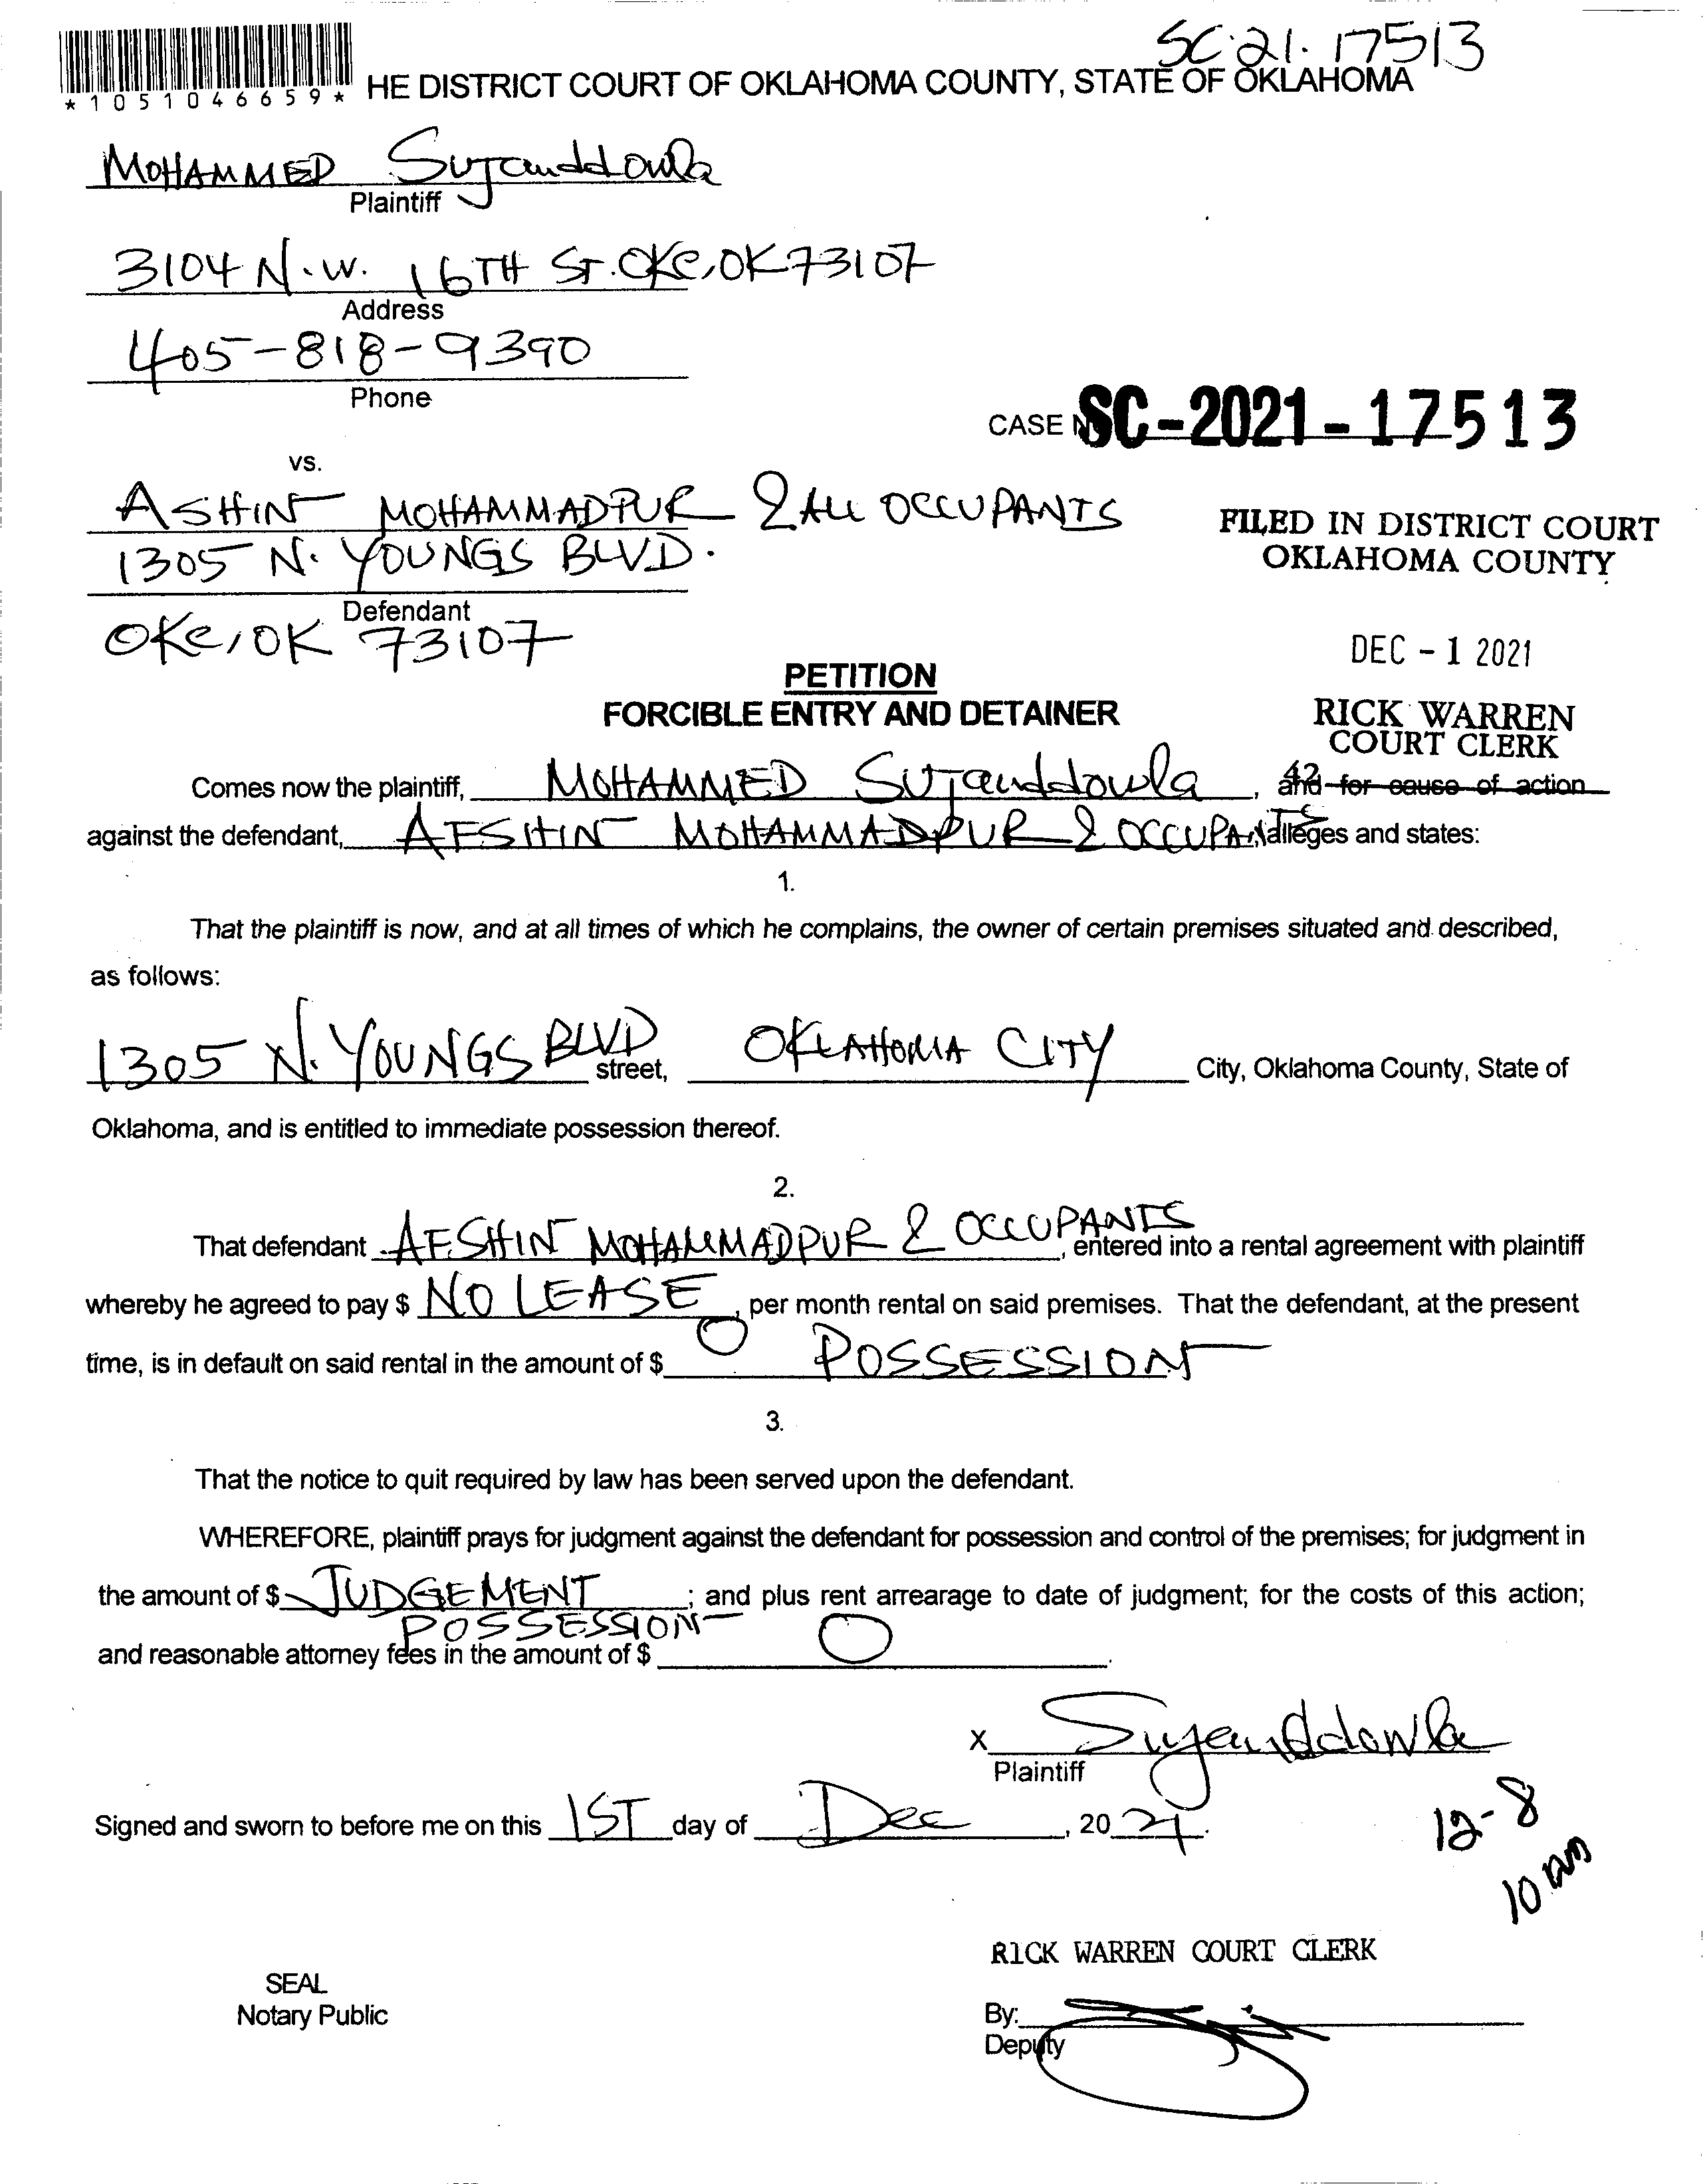 SC·21·17513
*1051046659* HE DISTRICT COURT OF OKLAHOMA COUNTY, STATE OF OKLAHOMA
MOHAMMED Sujauddowla
Plaintiff
3104 N.W. 16TH ST. OKC, OK 73107
Address
405-818-9390
Phone
CASE SC-2021-17513
vs.
ASHIN MOHAMMADPUR & ALL OCCUPANTS
1305 N. YOUNGS BLVD.
Defendant
OKC, OK 73107
FILED IN DISTRICT COURT
OKLAHOMA COUNTY
DEC - 1 2021
RICK WARREN
COURT CLERK
42
PETITION
FORCIBLE ENTRY AND DETAINER
Comes now the plaintiff, MOHAMMED Sujauddowla, and for cause of action
against the defendant, AFSHIN MOHAMMADPUR & OCCUPANTS alleges and states:
1.
That the plaintiff is now, and at all times of which he complains, the owner of certain premises situated and described,
as follows:
1305 N. YOUNGS BLVD street, OKLAHOMA CITY City, Oklahoma County, State of
Oklahoma, and is entitled to immediate possession thereof.
2.
That defendant AFSHIN MOHAMMADPUR & OCCUPANTS, entered into a rental agreement with plaintiff
whereby he agreed to pay $ NO LEASE, per month rental on said premises. That the defendant, at the present
time, is in default on said rental in the amount of $ 0 POSSESSION
3.
That the notice to quit required by law has been served upon the defendant.
WHEREFORE, plaintiff prays for judgment against the defendant for possession and control of the premises; for judgment in
the amount of $ JUDGEMENT; and plus rent arrearage to date of judgment; for the costs of this action;
POSSESSION
and reasonable attorney fees in the amount of $ 0.
x Sujauddowla
Plaintiff
Signed and sworn to before me on this 1ST day of Dec, 2021.
12-8
10 am
RICK WARREN COURT CLERK
SEAL
Notary Public
By:
Deputy